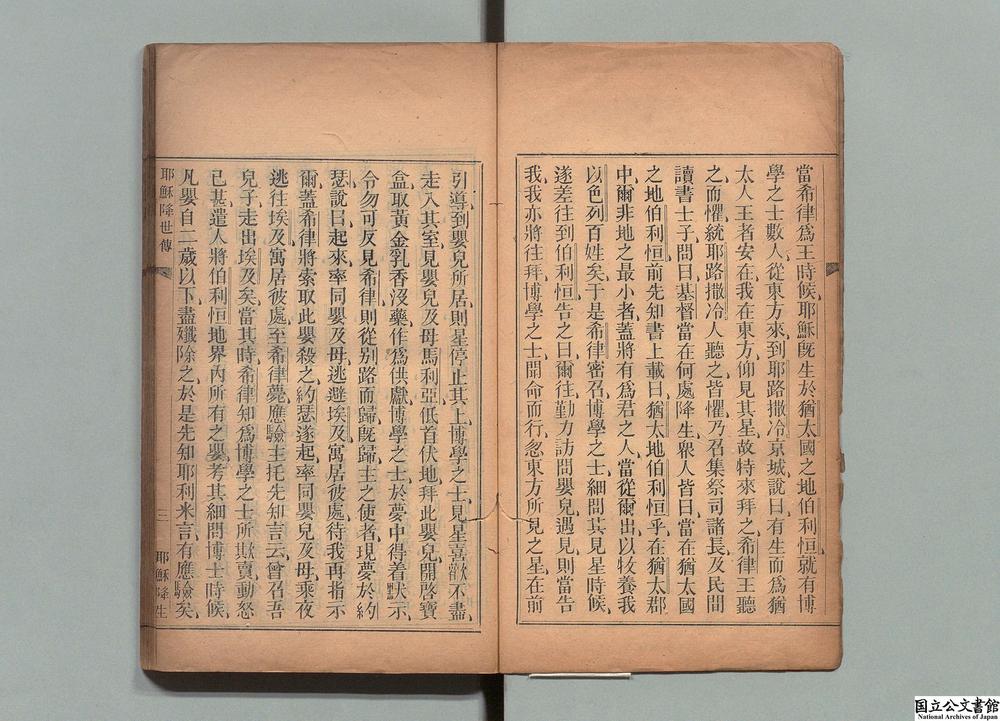 當希律爲王時候、耶穌旣生於猶太國之地伯利恒、就有博
學之士數人、從東方來、到耶路撒冷京城說曰、有生而爲猶
太人王者安在、我在東方仰見其星、故特來拜之、希律王聽
之而懼、統耶路撒冷人聽之皆懼、乃召集祭司諸長及民間
讀書士子問曰、基督當在何處降生、衆人皆曰、當在猶太國
之地伯利恒、前先知書上載曰、猶太地伯利恒乎、在猶太郡
中、爾非地之最小者、蓋將有爲君之人、當從爾出以牧養我
以色列百姓矣、于是希律密召博學之士、細問其見星時候、
遂差往到伯利恒、告之曰、爾往勤力訪問嬰兒、遇見則當告
我、我亦將往拜、博學之士聞命而行、忽東方所見之星在前
引導、到嬰兒所居、則星停止其上、博學之士見星喜歡不盡、
走入其室、見嬰兒及母馬利亞、低首伏地、拜此嬰兒、開啓寶
盒、取黃金乳香沒藥、作爲供獻、博學之士、於夢中得着默示、
令勿可反見希律、則從別路而歸、旣歸、主之使者現夢於約
瑟說曰、起來率同嬰及母、逃避埃及、寓居彼處、待我再指示
爾、蓋希律將索取此嬰殺之、約瑟遂起、率同嬰兒及母、乘夜
逃往埃及、寓居彼處、至希律薨、應驗主托先知言云、曾召吾
兒子走出埃及矣、當其時、希律知爲博學之士所欺賣、動怒
已甚、遣人將伯利恒地界內所有之嬰、考其細問博士時候、
凡嬰自二歲以下、盡殲除之、於是先知耶利米言、有應驗矣、
耶穌降世傳 三 耶穌降生
国立公文書館
National Archives of Japan